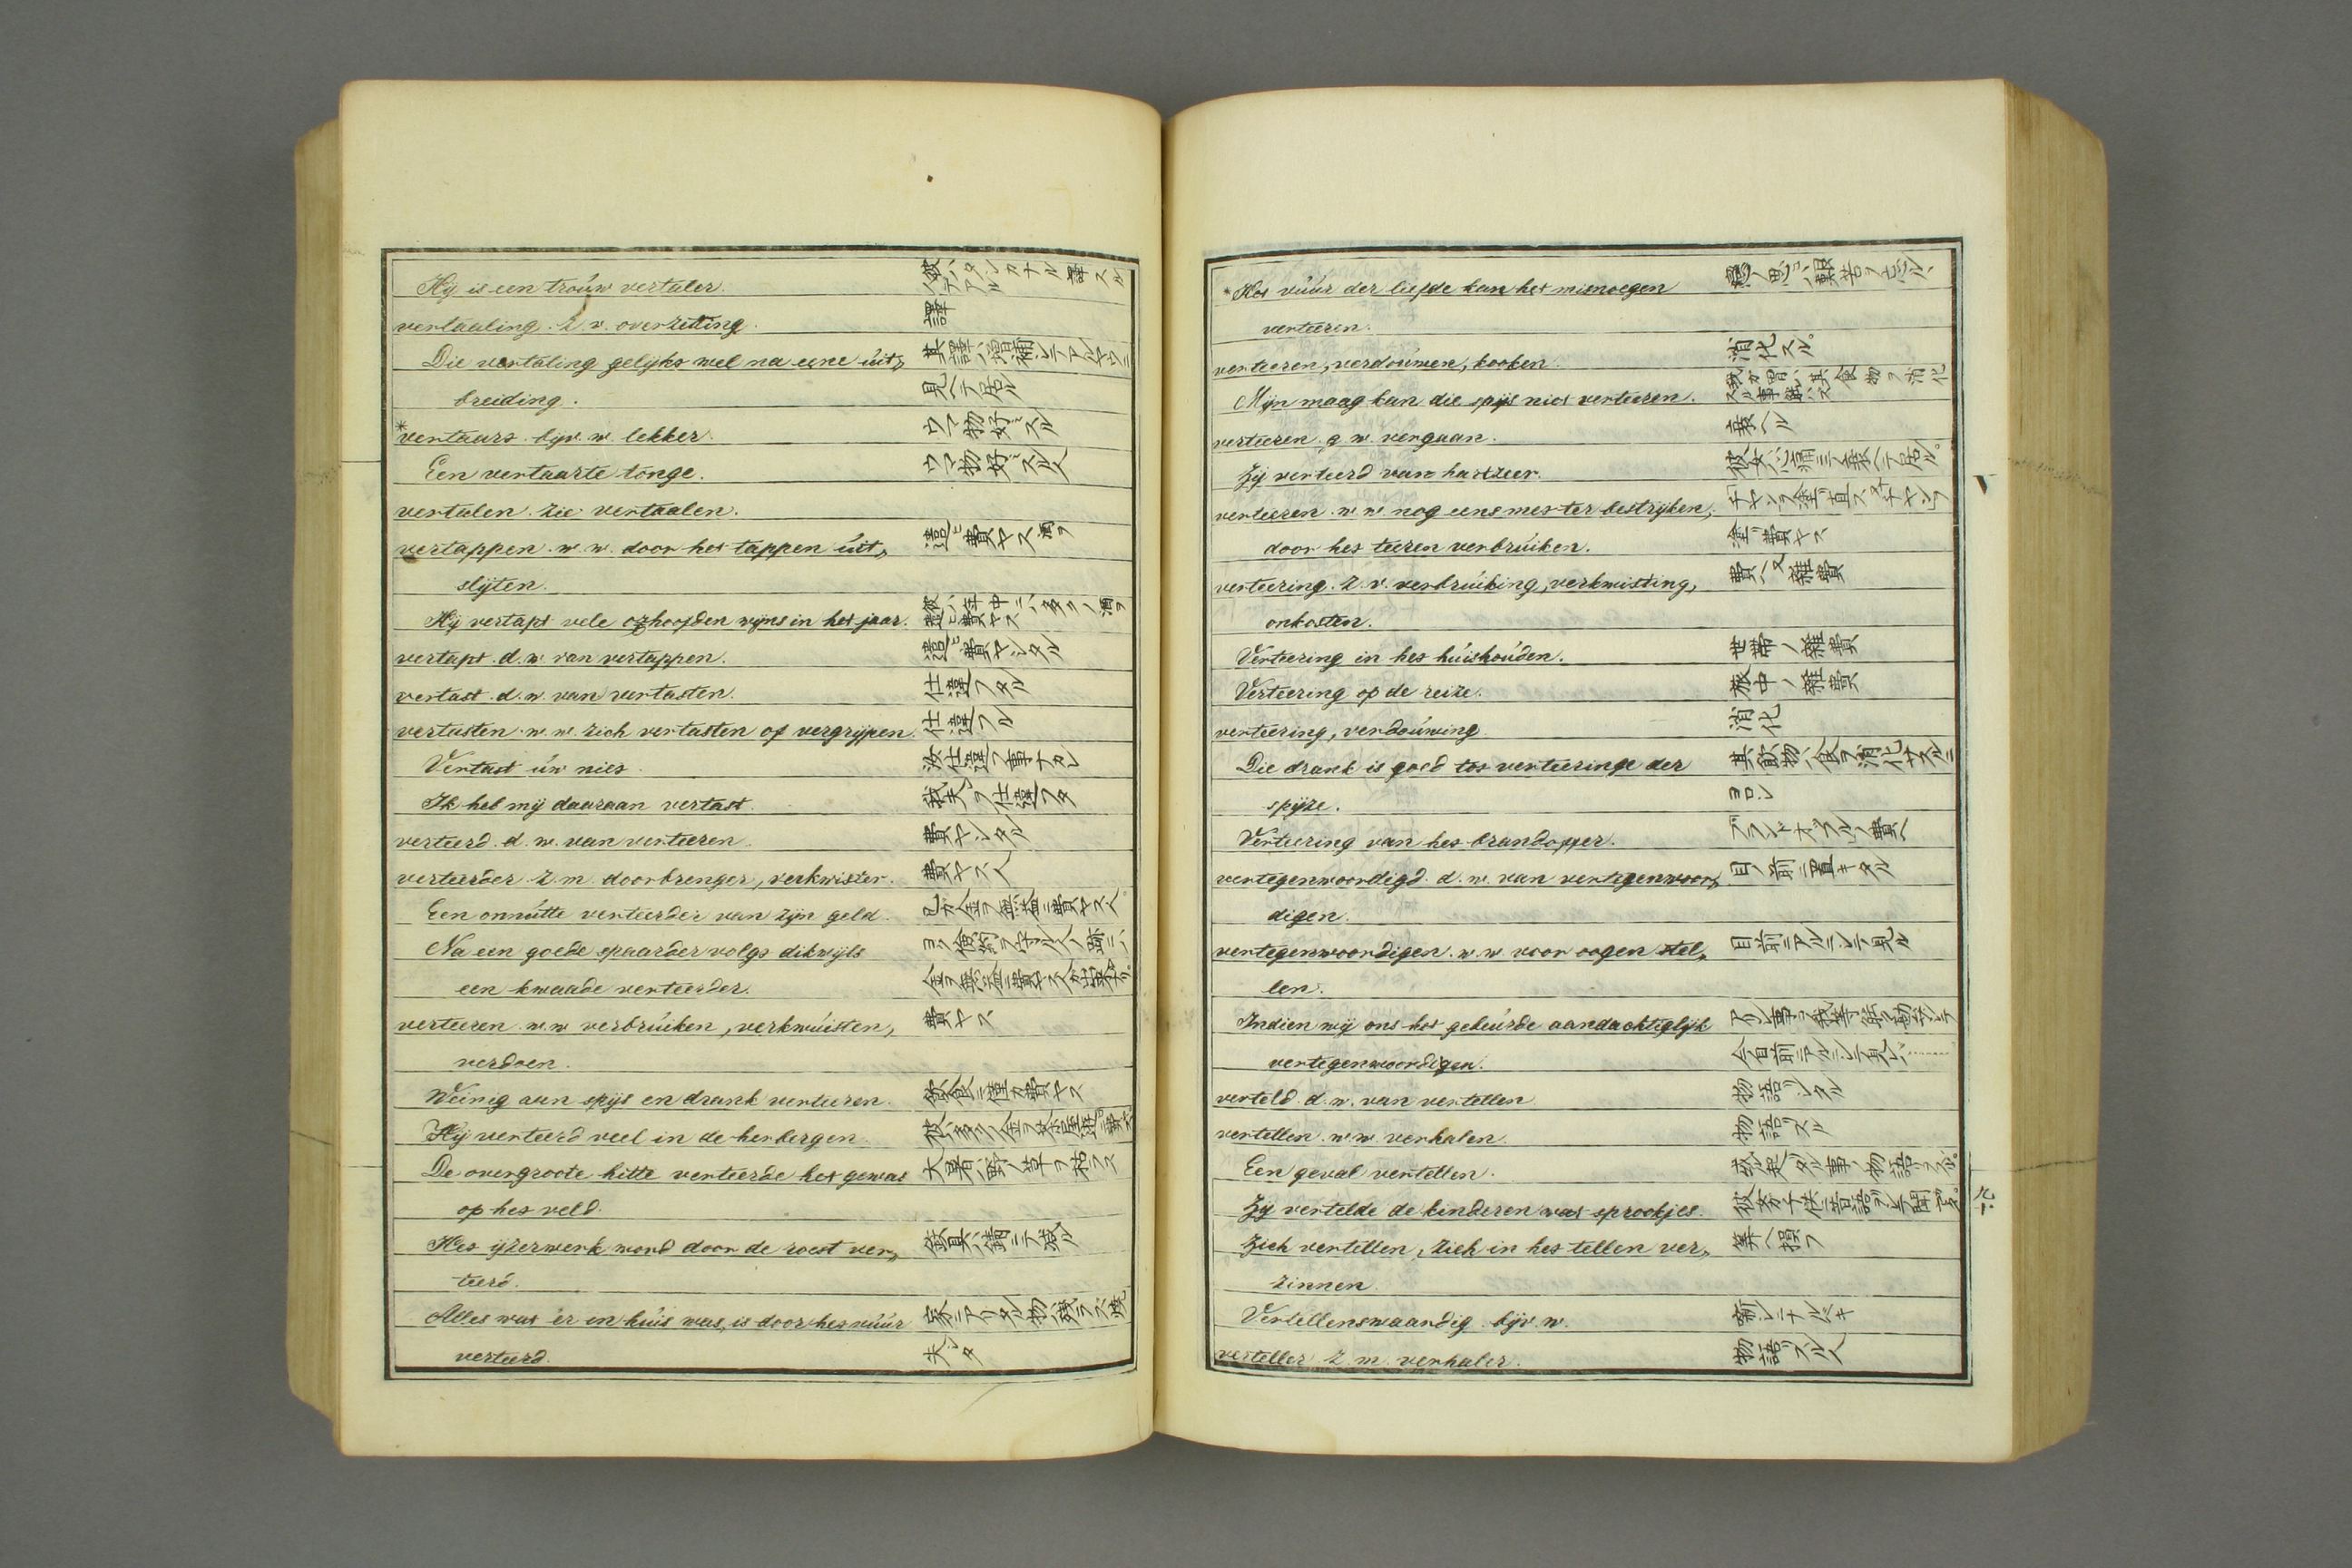 Hij is een troúw vertaler. 彼ハタシカナル譯スル人デアル
vertaaling. z. v. overzetting. 譯
Die vertaling gelijkt wel na eene úit„ 其譯ハ増補シテアルヤウニ
breiding. 見ヘテ居ル
*vertaart. bijv. w. lekker. ウマ物好ミスル
Een vertaarte tonge. ウマ物好ミスル人
vertalen. zie vertaalen.
vertappen. w. w. door het tappen úit„ 造ビ費ヤス酒ヲ
slijten.
Hij vertapt vele oxhoofden wijns in het jaar. 彼ハ年中ニハ多クノ酒ヲ
vertapt. d. w. van vertappen. 費ヤシタル
vertast. d. w. van vertasten. 仕違フタル
vertasten. w. w. zich vertasten of vergrijpen. 仕違フル
Vertast úw niet. 汝仕違フ事ナカレ
Ik heb mij daaraan vertast. 我夫レヲ仕違フタ
verteerd. d. w. van verteeren. 費ヤシタル
verteerder. z. m. doorbrenger, verkwister. 費ヤス人
Een onnútte verteerder van zijn geld. 己カ金ヲ無益ニ費ヤス人
Na een goede spaarder volgt dikwijls ヨク倹約ヲ守ル人ノ跡ニハ
een kwaade verteerder. 金ヲ無益ニ費ヤス人ガ出来ル
verteeren. w. w. verbrúiken, verkwúisten, 費ヤス
verdoen.
Weinig aan spijs en drank verteeren. 飲食ニ僅カ費ヤス
Hij verteerd veel in de herbergen. 彼ハ多クノ金ヲ茶屋
De overgroote hitte verteerde het gewas 大暑ハ野ノ草ヲ枯ラス
op het veld.
Het ijzerwerk word door de roest ver„ 鉄具ハ錆ニテ減ル
teerd.
Alles wat er in húis was, is door het vúúr 家ニアリタル物ハ残ラズ焼
verteerd. 失シタ
*Het vúúr der liefde kan het misnoegen 艱苦ヲ
verteeren.
verteeren, verdoúwen, kooken. 消化スル。
Mijn maag kan die spijs niet verteeren. 我カ胃ハ其食物ヲ消化スル事能ハズ
verteeren. g. w. vergaan. 衰ヘル
Zij verteerd van hartzeer. 彼女ハ心痛ニテ衰ヘテ居ル。
verteeren. w. w. nog eens met ter bestrijken, チヤンヲ塗リ直ス又チヤンヲ
door het teeren verbrúiken. 塗リ費ヤス
verteering. z. v. verbrúiking, verkwisting, 費ヘ又雑費
onkosten.
Verteering in het húishoúden. 世帯ノ雑費
Verteering op de reize. 旅中ノ雑費
verteering, verdoúwing. 消化
Die drank is goed tot verteeringe der 其飲物ハ食ヲ消化サスルニ
spijze. ヨロシ
Verteering van het brandoffer. ブランドオッフルノ費ヘ
vertegenwoordigd. d. w. van vertegenwoor„ 目ノ前ニ置キタル
digen.
vertegenwoordigen. w. w. voor oogen stel„ 目前ニアルニシテ見ル
len.
Indien wij ons het gebeúrde aandachtiglijk アリシ事ヲ我等
vertegenwoordigen. 今目前ニアルニシテ見レバ……
verteld. d. w. van vertellen. 物語リシタル
vertellen. w. w. verhalen. 物語リスル
Een geval vertellen. 事ノ物語リスル。
Zij vertelde de kinderen wat sprookjes. 彼女子供ニ昔話ヲシテ聞
Zich vertellen, zich in het tellen ver„ 算ヘ損フ
zinnen.
Vertellenswaardig. bijv. w.
verteller. z. m. verhaler. 物語リスル人
V